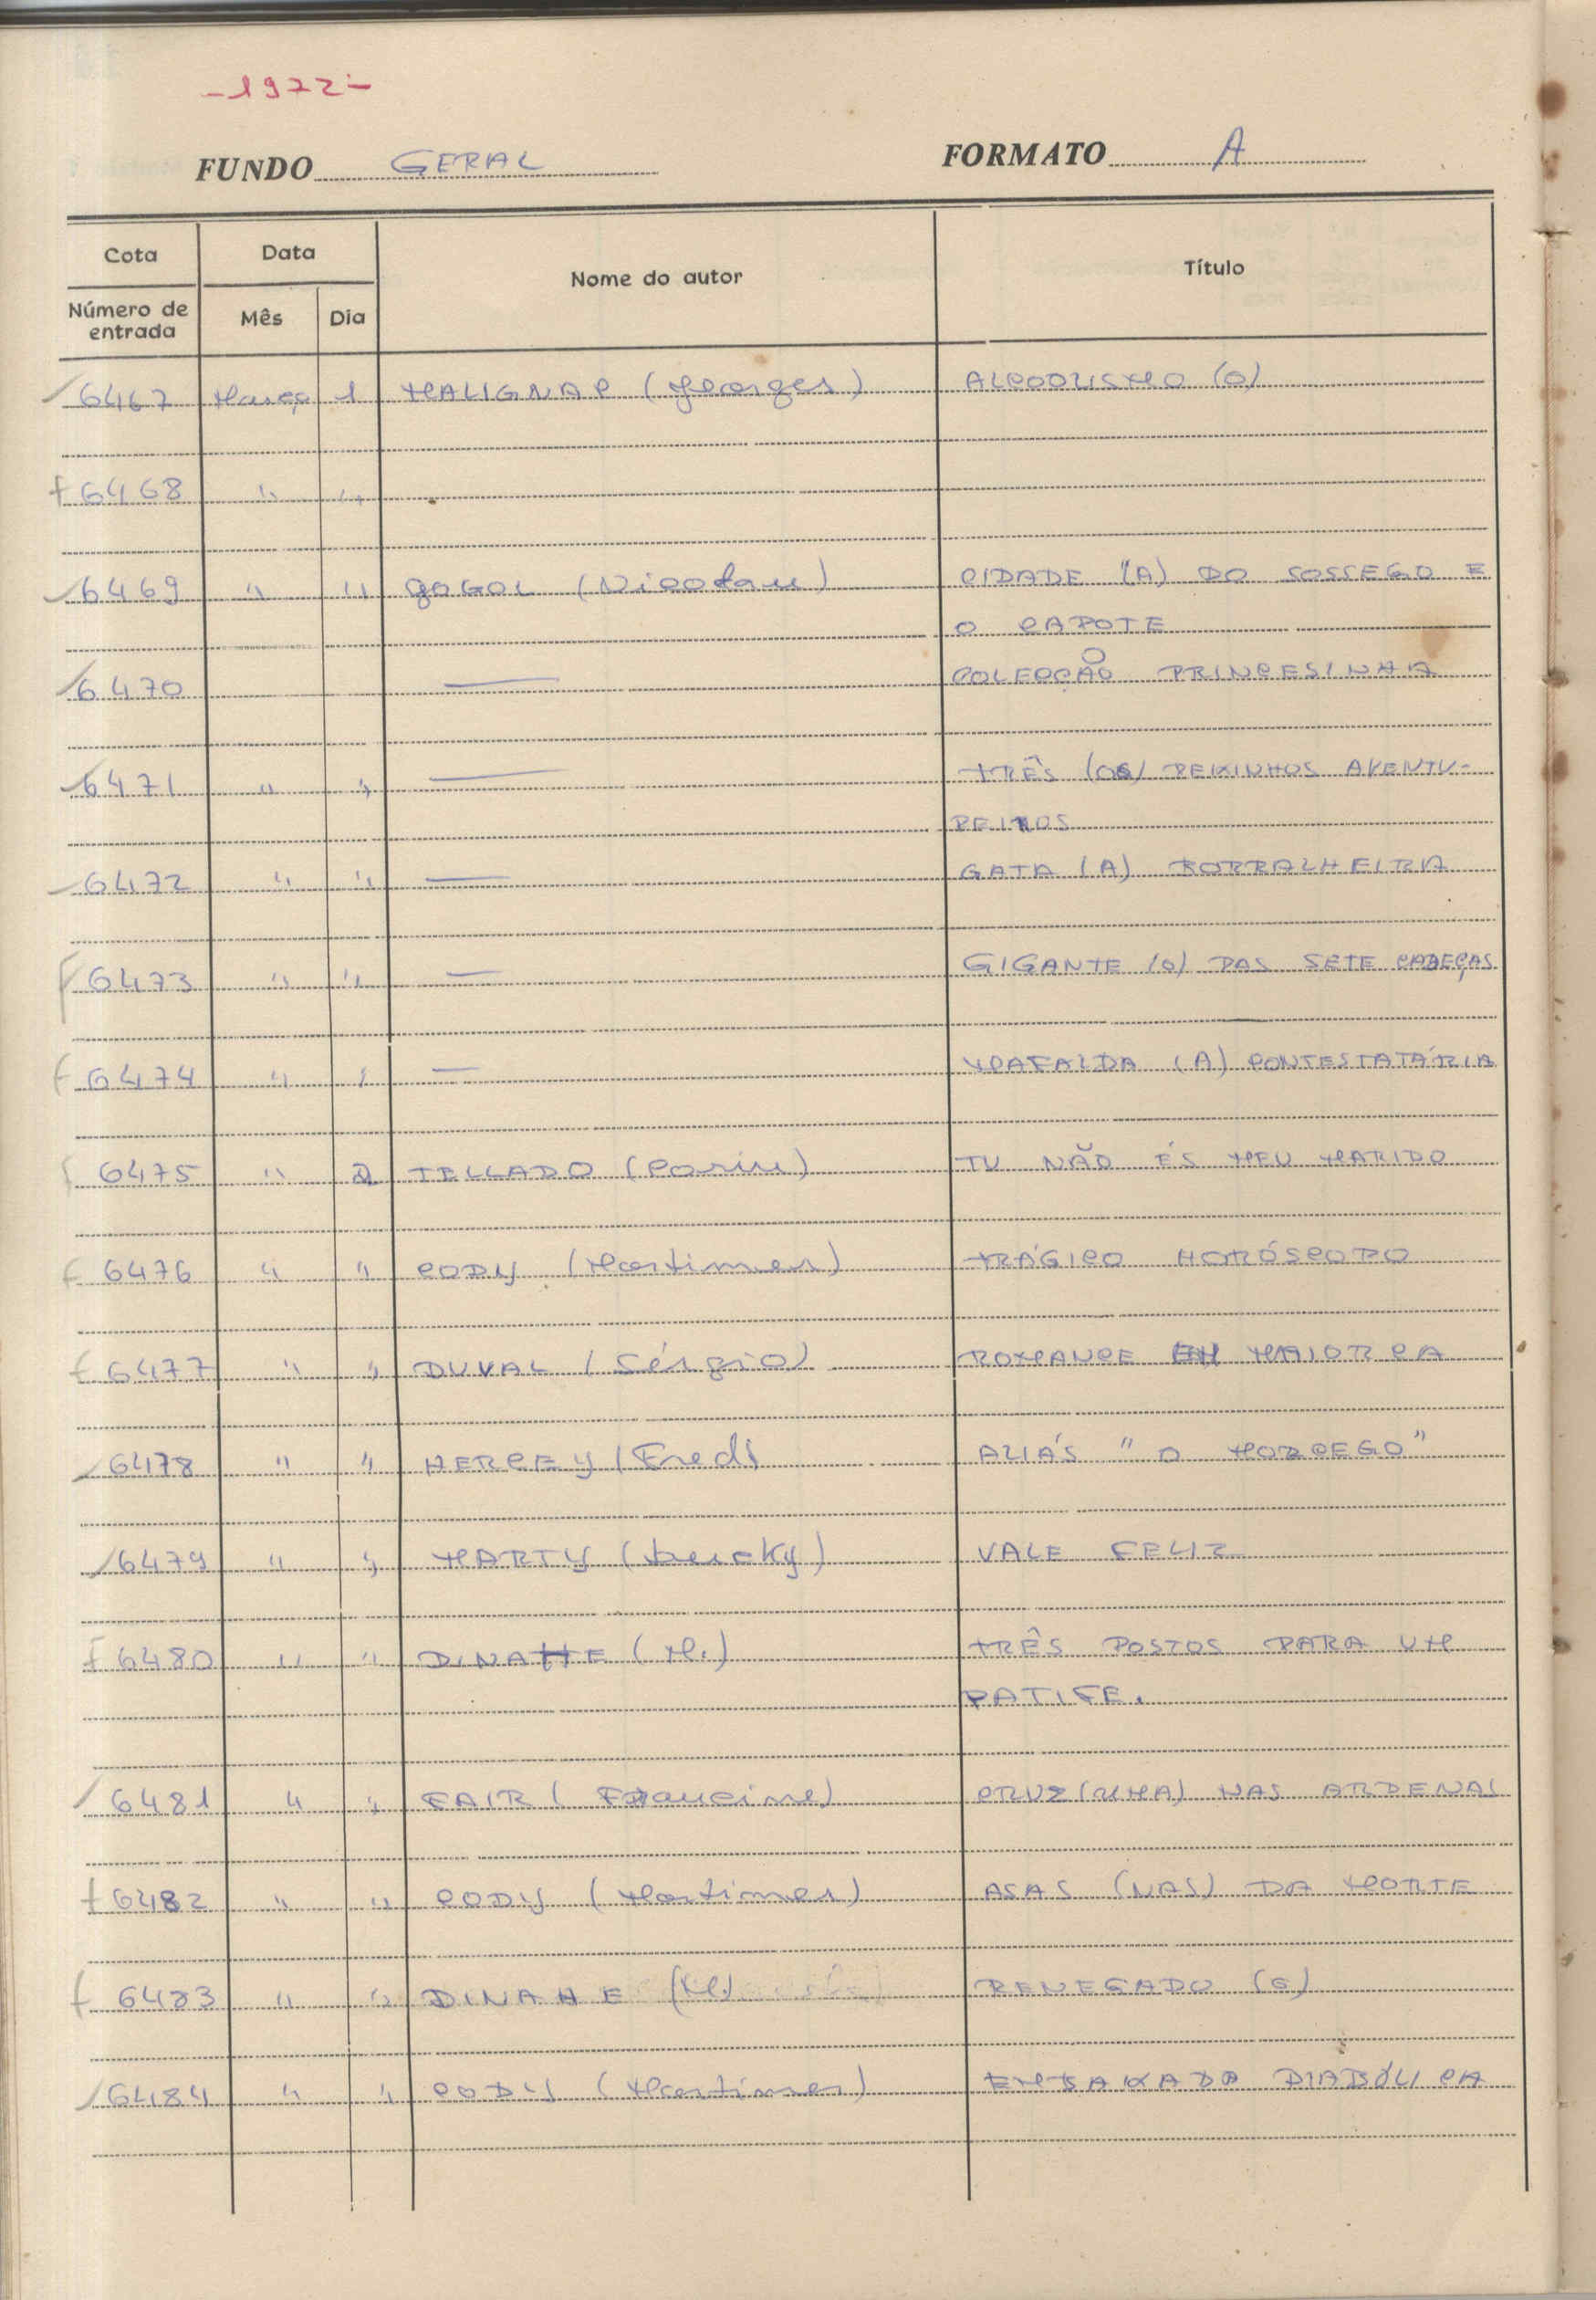 -1972-
FUNDO GERAL FORMATO A
Cota Data Nome do autor Título
Número de entrada Mês Dia
6467 Março 1 MALIGNAC (Georges) ALCOOLISMO (O)
6468 " "
6469 " " GOGOL (Nicolau) CIDADE (A) DO SOSSEGO E
O CAPOTE
6470 — COLECÇÃO PRINCESINHA
6471 " " — TRÊS (OS) PEIXINHOS AVENTU-
REIROS
6472 " " — GATA (A) BORRALHEIRA
6473 " " — GIGANTE (O) DAS SETE CABEÇAS
6474 " " — MAFALDA (A) CONTESTATÁRIA
6475 " 2 TELLADO (Corin) TU NÃO ÉS MEU MARIDO
6476 " " CODY (Mortimer) TRÁGICO HORÓSCOPO
6477 " " DUVAL (Sérgio) ROMANCE EM MAIORCA
6478 " " HERCEY (Fred) ALIÁS " O MORCEGO"
6479 " " MARTY (Lucky) VALE FELIZ
6480 " " DINAHE (M.) TRÊS POSTOS PARA UM
PATIFE.
6481 " " FAIR (Francine) CRUZ (UMA) NAS ARDENAS
6482 " " CODY (Mortimer) ASAS (NAS) DA MORTE
6483 " " DINAHE (M.) RENEGADO (O)
6484 " " CODY (Mortimer) EMBAXADA DIABÓLICA